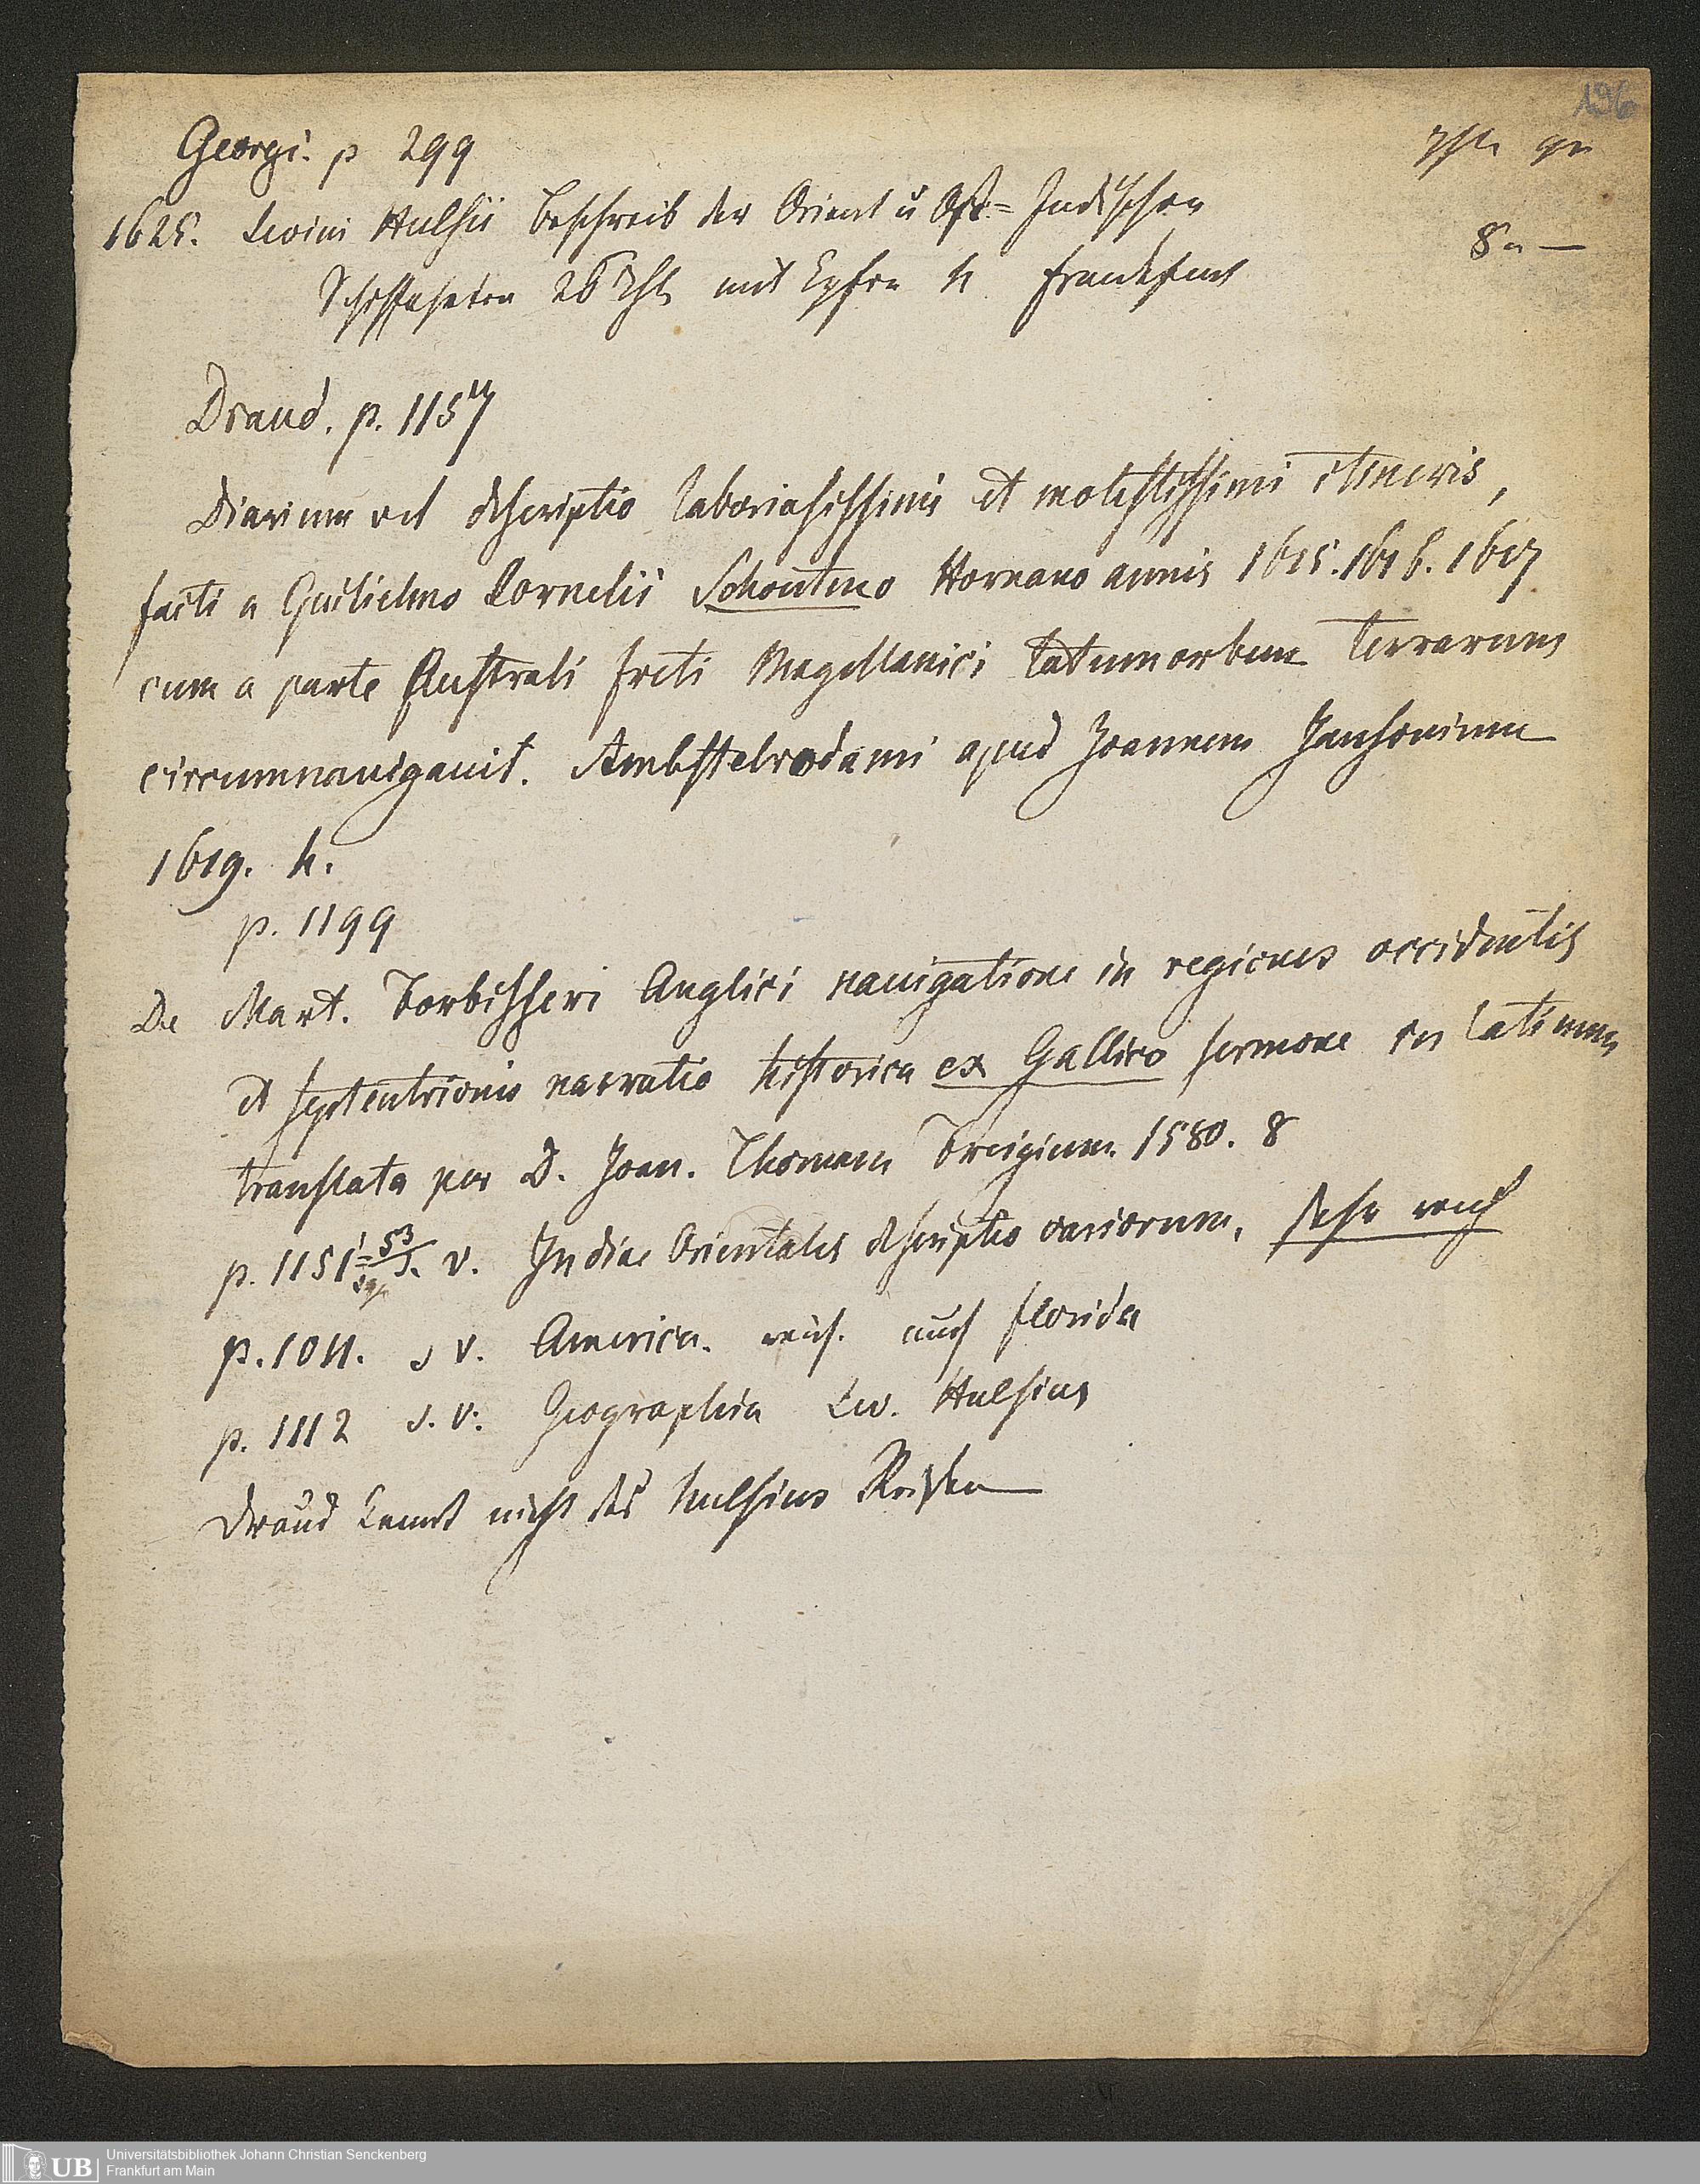 196
Georgi. p 299
rthl gr
1625. Levini Hulsii Beschreib der Orient u Ost=Indischen
8 „ —
Schiffahrten 26 Thl mit Kpfrn 4. Frankfurt
Draud. p. 1157
Diarium vel descriptio laboriosissimi et molestissimi itineris,
facti a Guilielmo Cornelii Schouteno Hornano annis 1615. 1616. 1617
cum a parte Australi freti Magellanici totum orbem terrarum
circumnauigauit. Ambstelrodami apud Joannem Jansonium
1619. 4.
p. 1199
De Mart. Forbissheri Anglici nauigatione in regiones occidentis
et septentrionis narratio historica ex Gallico sermone in latinum
translata per D. Joan. Thomam Freigium. 1580. 8
p. 1151-53 s. v. Indiae Orientalis descriptio variorum, sehr reich
p. 1011. s v. America. reich. auch Florida
p. 1112 s. v. Geographia Lev. Hulsius
Draud kennt nicht des Hulsius Reisen
UB
Universitätsbibliothek Johann Christian Senckenberg
Frankfurt am Main